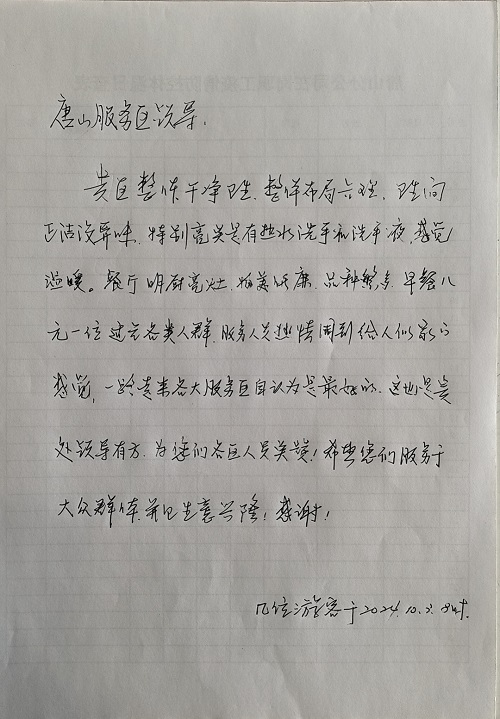 唐山服务区领导,
贵区整体干净卫生,整体布局合理,卫生间
正洁没异味,特别亮关是有热水洗手和洗手液,感觉
温暖。餐厅明厨亮灶,物美价廉,品种繁多,早餐八
元一位适合各类人群,服务人员热情周到给人似家的
感觉,一路走来各大服务区自认为是最好的,这也是贵
处领导有方,为您们各区人员点赞!希望您们服务于
大众群体,并且生意兴隆!感谢!
几位游客于2024.10.